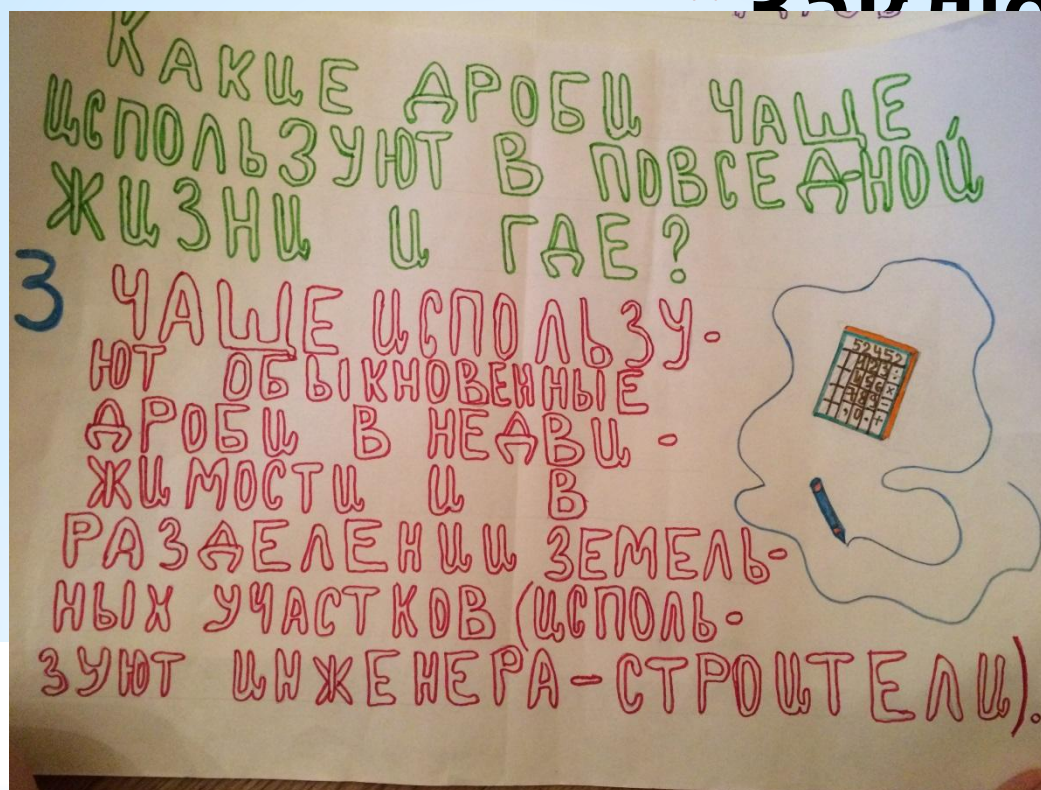 Какие дроби чаще
используют в повсед-ной
жизни и где?
3
Чаще использу-
ют обыкновенные
дроби в недви-
жимости и в
разделении земель-
ных участков (исполь-
зуют инженера-строители).
52452